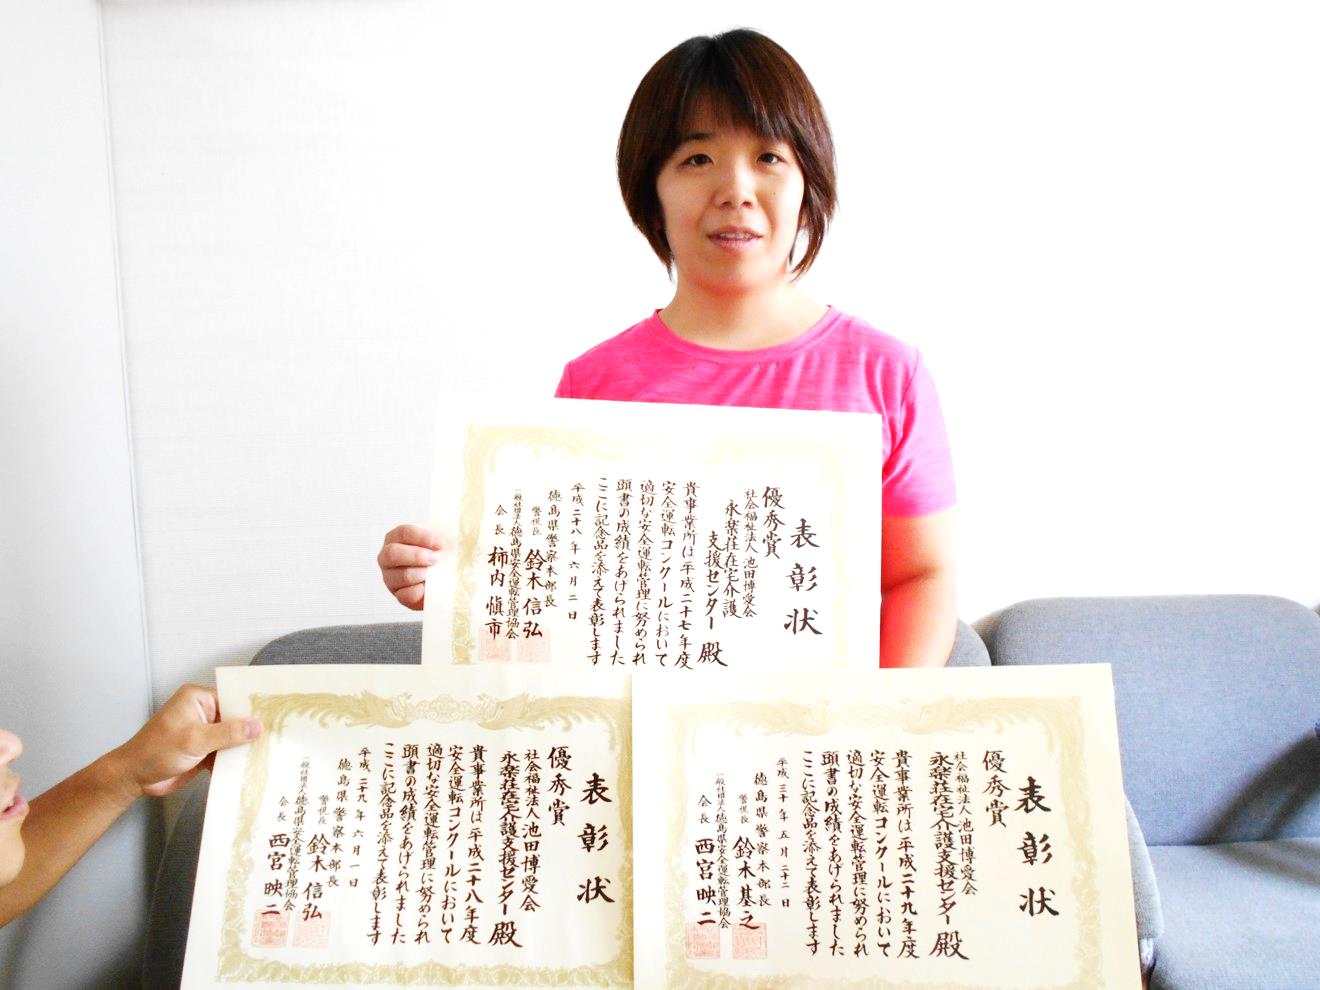 表彰状
優秀賞
社会福祉法人 池田博愛会
永楽荘在宅介護
支援センター 殿
貴事業所は平成二十七年度
安全運転コンクールにおいて
適切な安全運転管理に努められ
頭書の成績をあげられました
ここに記念品を添えて表彰します
平成二十八年六月二日
徳島県警察本部長
警視長 鈴木信弘
一般社団法人徳島県安全運転管理協会
会長 柿内愼市
表彰状
優秀賞
社会福祉法人池田博愛会
永楽荘在宅介護支援センター殿
貴事業所は平成二十八年度
安全運転コンクールにおいて
適切な安全運転管理に努められ
頭書の成績をあげられました
ここに記念品を添えて表彰します
平成二十九年六月一日
徳島県警察本部長
警視長 鈴木信弘
一般社団法人徳島県安全運転管理協会
会長 西宮映二
表彰状
優秀賞
社会福祉法人池田博愛会
永楽荘在宅介護支援センター殿
貴事業所は平成二十九年度
安全運転コンクールにおいて
適切な安全運転管理に努められ
頭書の成績をあげられました
ここに記念品を添えて表彰します
平成三十年五月二十二日
徳島県警察本部長
警視長 鈴木基之
一般社団法人徳島県安全運転管理協会
会長 西宮映二